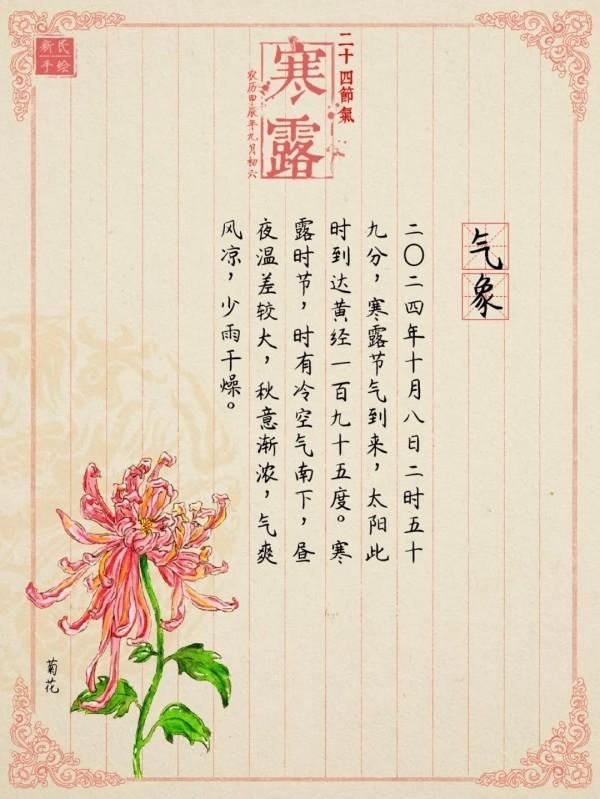 二十四節氣
寒露
农历甲辰年九月初六
新民
手绘
气象
二〇二四年十月八日二时五十
九分，寒露节气到来，太阳此
时到达黄经一百九十五度。寒
露时节，时有冷空气南下，昼
夜温差较大，秋意渐浓，气爽
风凉，少雨干燥。
菊花